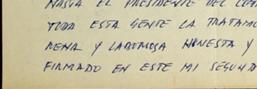 HASTA EL PRESIDENTE DEL
TODA ESTA GENTE LA TRATAMO
Y LABORIOSA HONESTA Y
FIRMADO EN ESTE MI SEGUND